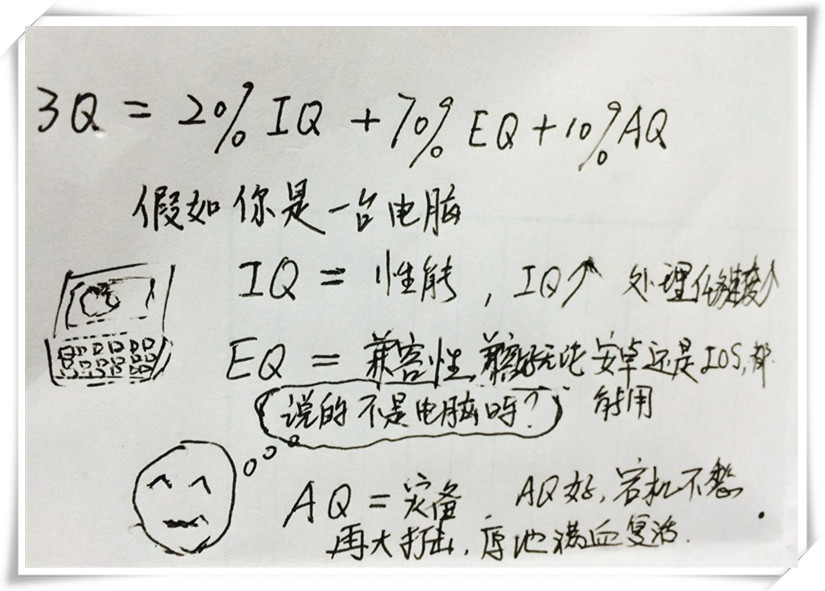 3Q = 20% IQ + 70% EQ + 10% AQ
假如你是一台电脑
IQ = 性能, IQ↑ 处理任务速度↑
EQ = 兼容性, 兼容好无论安卓还是IOS,都
能用
说的不是电脑吗?
AQ = 灾备 AQ好,宕机不愁
再大打击,原地满血复活.